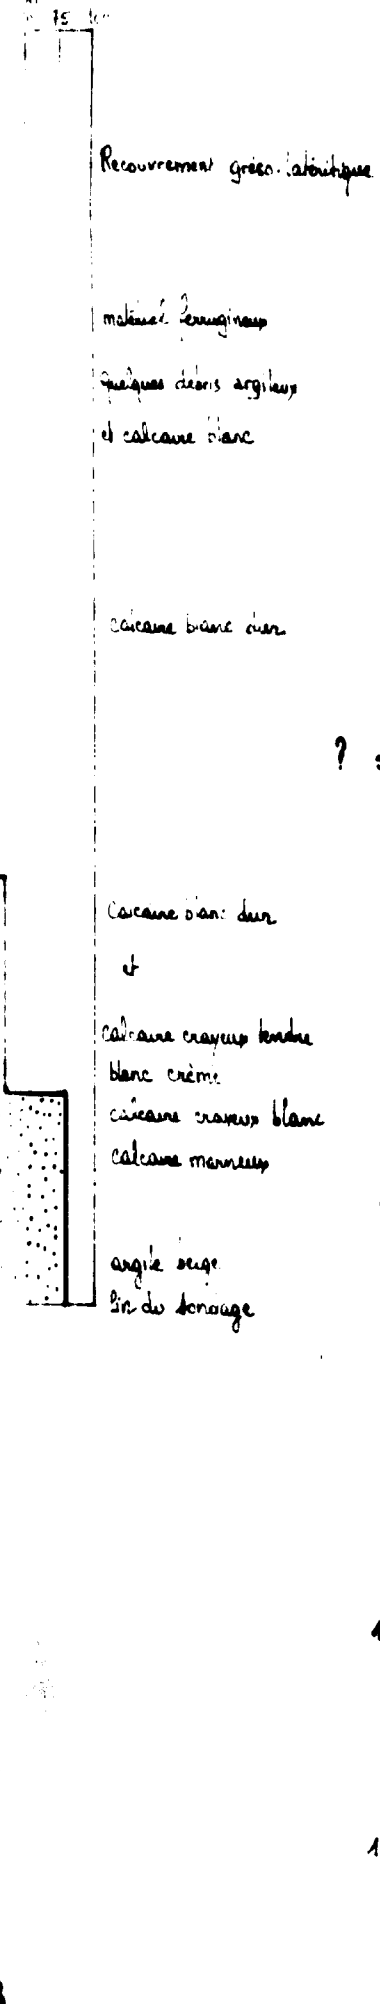 75 100
Recouvrement gréso-latéritique
matériel ferrugineux
quelques débris argileux
et calcaire blanc
calcaire blanc dur
?
Calcaire blanc dur
et
calcaire crayeux tendre
blanc crème
calcaire crayeux blanc
calcaire marneux
argile beige
fin du sondage
1
1